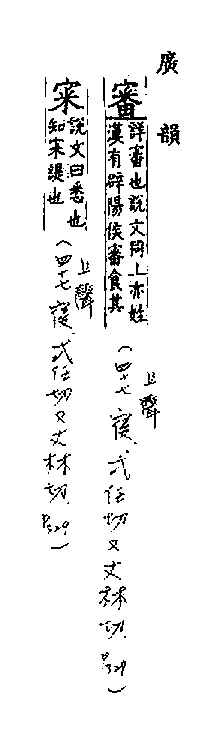 廣韻
審 詳審也說文同上亦姓
漢有辟陽侯審食其
上聲
(四十七寑.式任切又丈林切. P.329)
宷 說文曰悉也
知宷諟也
上聲
(四十七寑.式任切又丈林切. P.329)